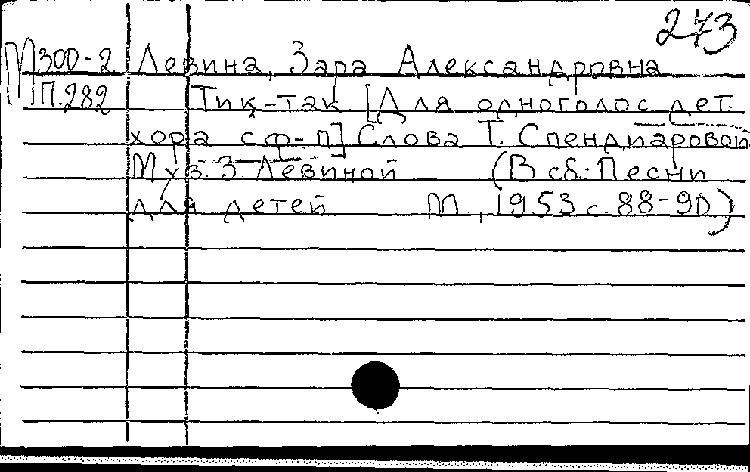 273
М300-2 Левина, Зара Александровна
П.282 Тик-так [Для одноголос. дет.
хора с ф-п] Слова Т. Спендиаровой
Муз. З Левиной (В сб.: Песни
для детей М., 1953 с. 88-90)